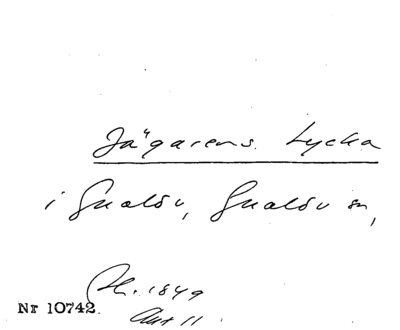 Jägarens Lycka
i Gualöv, Gualöv sn,
Pl. 1849
Akt 11
Nr 10742.